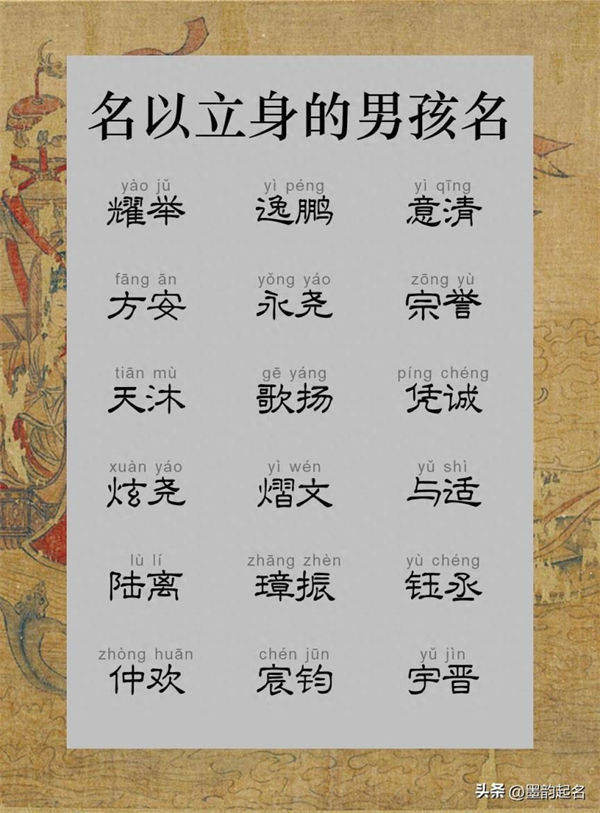 名以立身的男孩名
yào jǔ yì péng yì qīng
耀举 逸鹏 意清
fāng ān yǒng yáo zōng yù
方安 永尧 宗誉
tiān mù gē yáng píng chéng
天沐 歌扬 凭诚
xuàn yáo yì wén yǔ shì
炫尧 熠文 与适
lù lí zhāng zhèn yù chéng
陆离 璋振 钰丞
zhòng huān chén jūn yǔ jìn
仲欢 宸钧 宇晋
头条 @墨韵起名